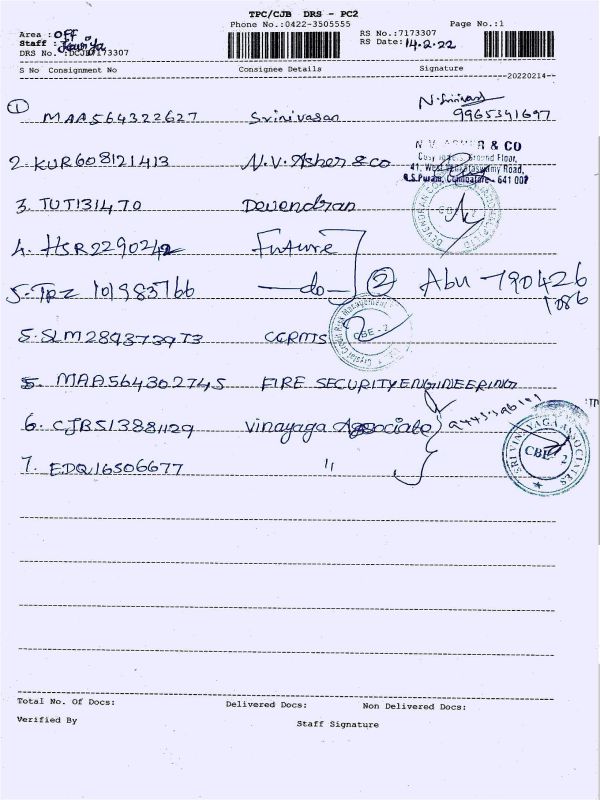 TPC/CJB DRS - PC2
Phone No.:0422-3505555
Page No.:1
Area : OFF
Staff :
DRS No. :DCJB7173307
RS No.:7173307
RS Date: 14.2.22
S No Consignment No Consignee Details Signature
--20220214--
1 MAA564322627 Srinivasan N. Srinivasan
9965341697
2. KUR608121413 N.V. Asher & co
N V ASHER & CO
Ground Floor,
R.S.Puram, Coimbatore - 641 002
3. TUT131470 Devendran
4. HSR2290242 Future
5. TPZ 101983766 —do— 2 Abu - 790426
1086
5. SLM289373973 CCRMTS
CBE-2
5. MAA564302745 FIRE SECURITY ENGINEERING
6. CJB51388129 Vinayaga Associate
7. EDQ16506677 "
SRI VINAYAGA ASSOCIATES
CBE 2
Total No. Of Docs: Delivered Docs: Non Delivered Docs:
Verified By Staff Signature